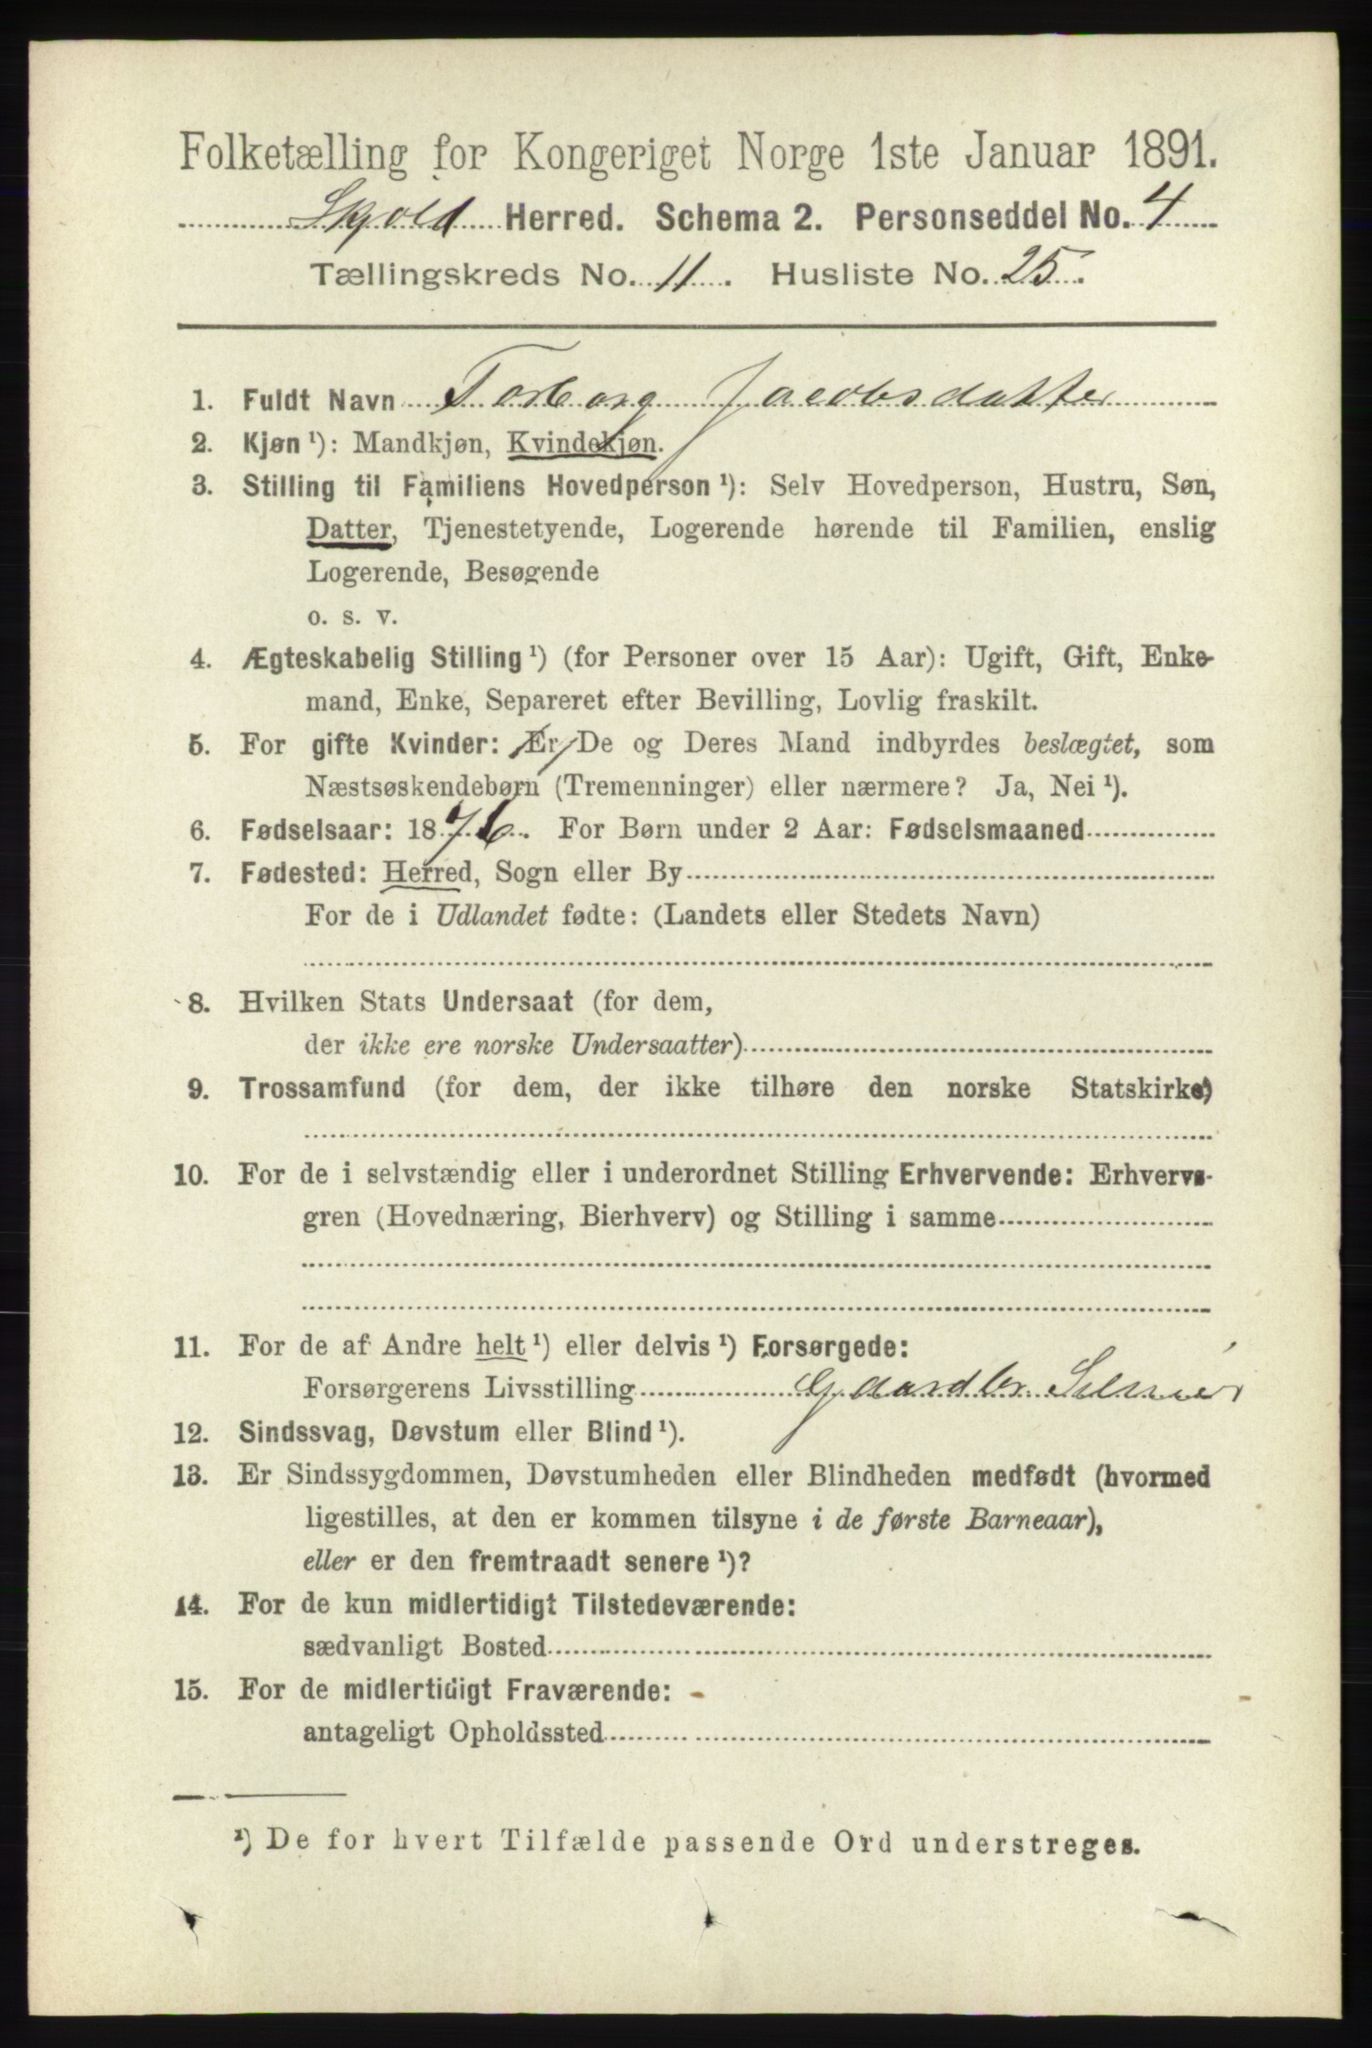 Folketælling for Kongeriget Norge 1ste Januar 1891.
Skjold Herred. Schema 2. Personseddel No. 4
Tællingskreds No. 11. Husliste No. 25.
1. Fuldt Navn Torborg Jacobsdatter
2. Kjøn ¹): Mandkjøn, Kvindekjøn.
3. Stilling til Familiens Hovedperson ¹): Selv Hovedperson, Hustru, Søn,
Datter, Tjenestetyende, Logerende hørende til Familien, enslig
Logerende, Besøgende
o. s. v.
4. Ægteskabelig Stilling ¹) (for Personer over 15 Aar): Ugift, Gift, Enke-
mand, Enke, Separeret efter Bevilling, Lovlig fraskilt.
5. For gifte Kvinder: Er De og Deres Mand indbyrdes beslægtet, som
Næstsøskendebørn (Tremenninger) eller nærmere? Ja, Nei ¹).
6. Fødselsaar: 1876. For Børn under 2 Aar: Fødselsmaaned
7. Fødested: Herred, Sogn eller By
For de i Udlandet fødte: (Landets eller Stedets Navn)
8. Hvilken Stats Undersaat (for dem,
der ikke ere norske Undersaatter)
9. Trossamfund (for dem, der ikke tilhøre den norske Statskirke)
10. For de i selvstændig eller i underordnet Stilling Erhvervende: Erhvervs-
gren (Hovednæring, Bierhverv) og Stilling i samme
11. For de af Andre helt ¹) eller delvis ¹) Forsørgede:
Forsørgerens Livsstilling Gaardbr.
12. Sindssvag, Døvstum eller Blind ¹).
13. Er Sindssygdommen, Døvstumheden eller Blindheden medfødt (hvormed
ligestilles, at den er kommen tilsyne i de første Barneaar),
eller er den fremtraadt senere ¹)?
14. For de kun midlertidigt Tilstedeværende:
sædvanligt Bosted
15. For de midlertidigt Fraværende:
antageligt Opholdssted
¹) De for hvert Tilfælde passende Ord understreges.